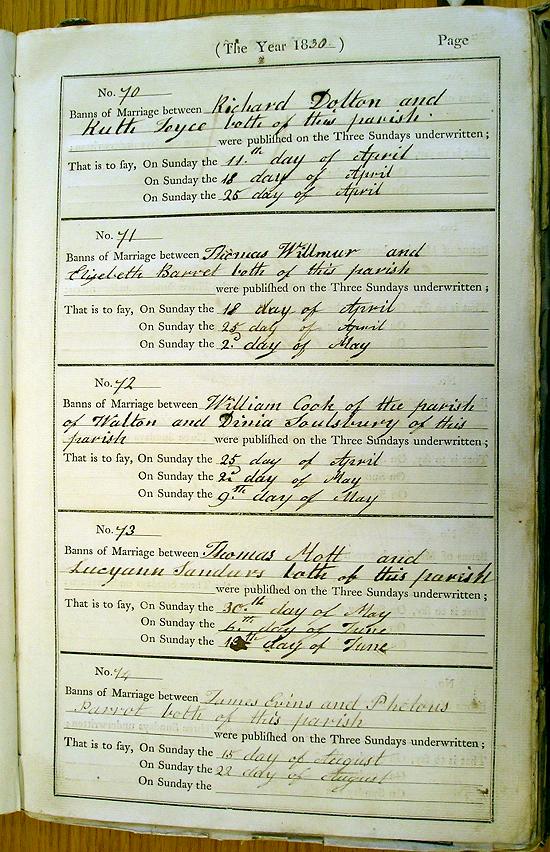 (The Year 1830) Page
No. 70
Banns of Marriage between Richard Dolton and
Ruth Joyce both of this parish
were published on the Three Sundays underwritten;
That is to say, On Sunday the 11th day of April
On Sunday the 18 day of April
On Sunday the 25 day of April
No. 71
Banns of Marriage between Thomas Willmur and
Elizebeth Barret both of this parish
were published on the Three Sundays underwritten;
That is to say, On Sunday the 18 day of April
On Sunday the 25 day of April
On Sunday the 2d day of May
No. 72
Banns of Marriage between William Cook of the parish
of Walton and Dinia Soulsbury of this
parish were published on the Three Sundays underwritten;
That is to say, On Sunday the 25 day of April
On Sunday the 2d day of May
On Sunday the 9th day of May
No. 73
Banns of Marriage between Thomas Mott and
Lucyann Sandurs both of this parish
were published on the Three Sundays underwritten;
That is to say, On Sunday the 30th day of May
On Sunday the 6th day of June
On Sunday the 13th day of June
No. 74
Banns of Marriage between James Evins and
Parrot both of this parish
were published on the Three Sundays underwritten;
That is to say, On Sunday the 15 day of August
On Sunday the 22 day of August
On Sunday the